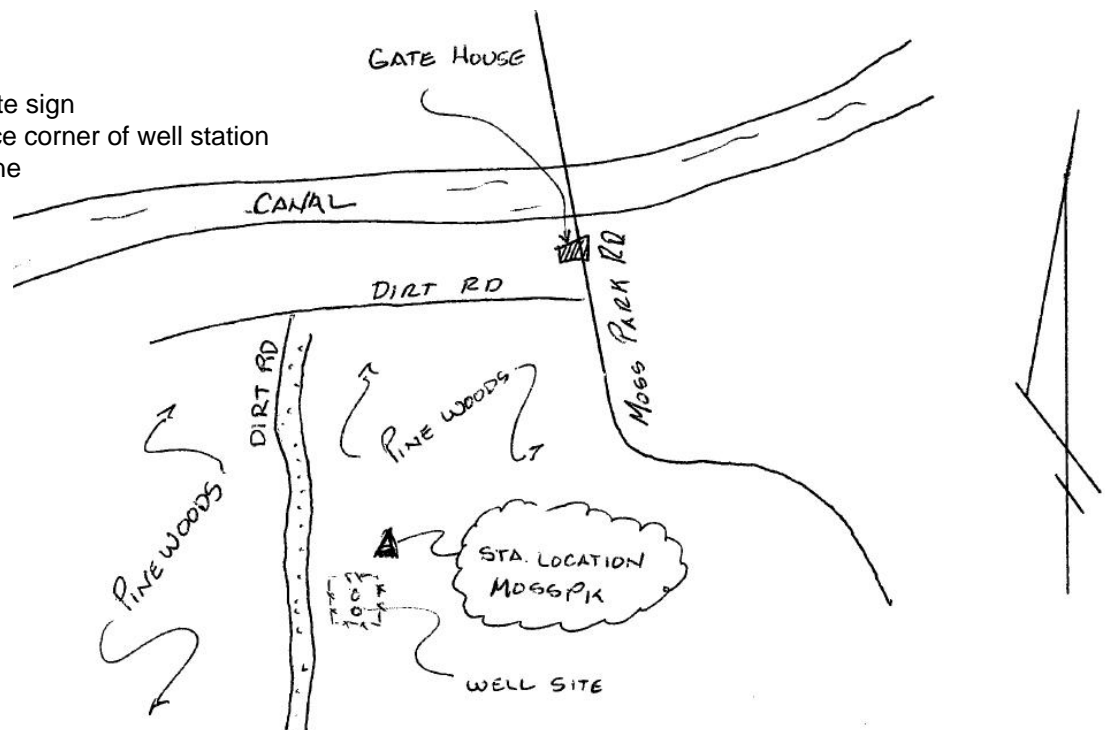 GATE HOUSE
te sign
ce corner of well station
ne
CANAL
DIRT RD
MOSS PARK RD
DIRT RD
PINE WOODS
PINE WOODS
STA. LOCATION
MOSSPK
WELL SITE